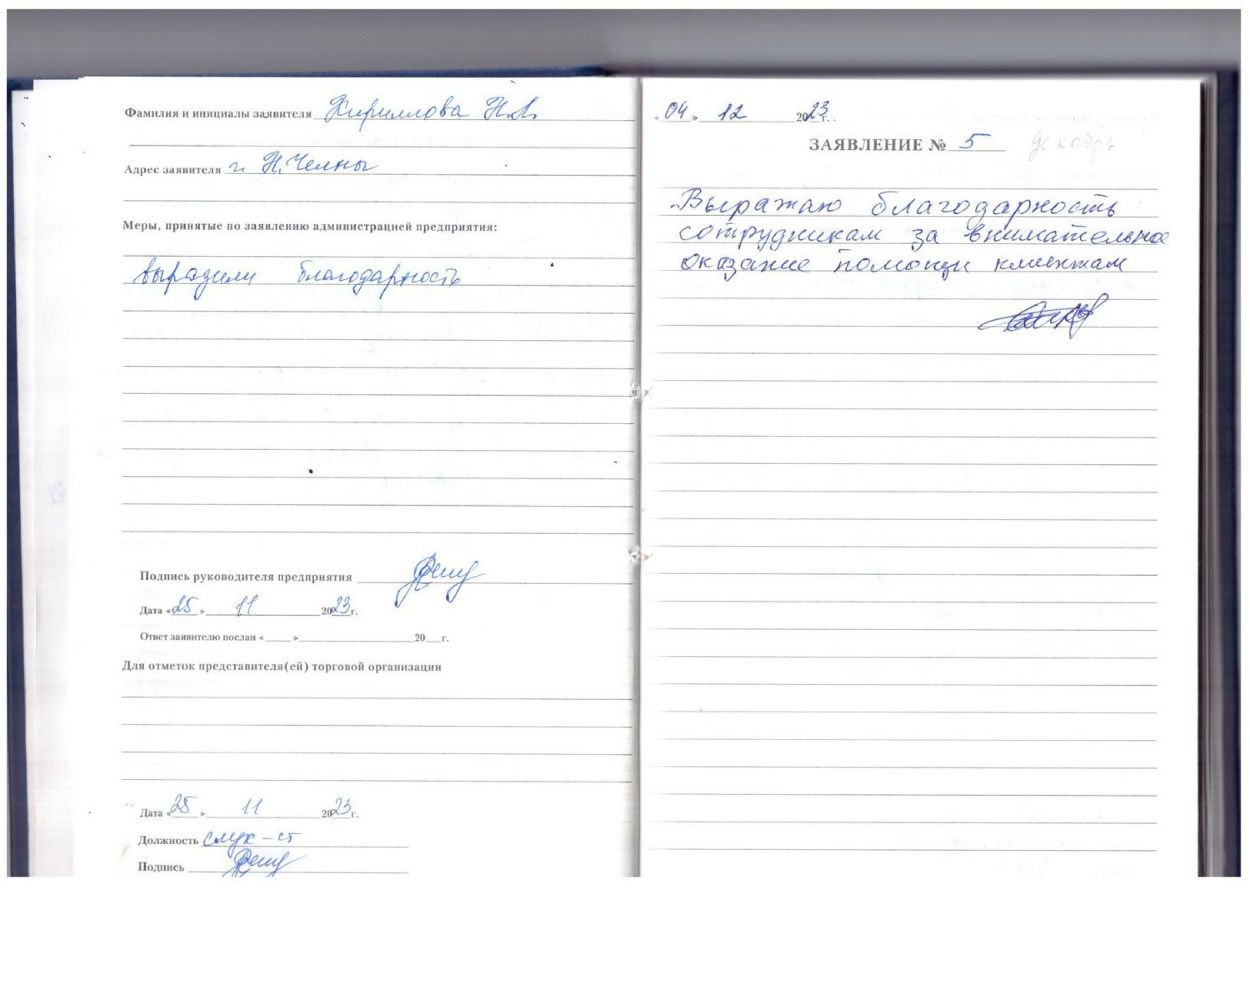 Фамилия и инициалы заявителя Кириллова Н.А.
Адрес заявителя г. Н.Челны
Меры, принятые по заявлению администрацией предприятия:
выразили благодарность
Подпись руководителя предприятия
Дата «25» 11 2023г.
Ответ заявителю послан « » 20 г.
Для отметок представителя(ей) торговой организации
Дата «25» 11 2023г.
Должность
Подпись
«04» 12 2023г.
ЗАЯВЛЕНИЕ № 5 декабрь
Выражаю благодарность
сотрудникам за внимательное
оказание помощи клиентам